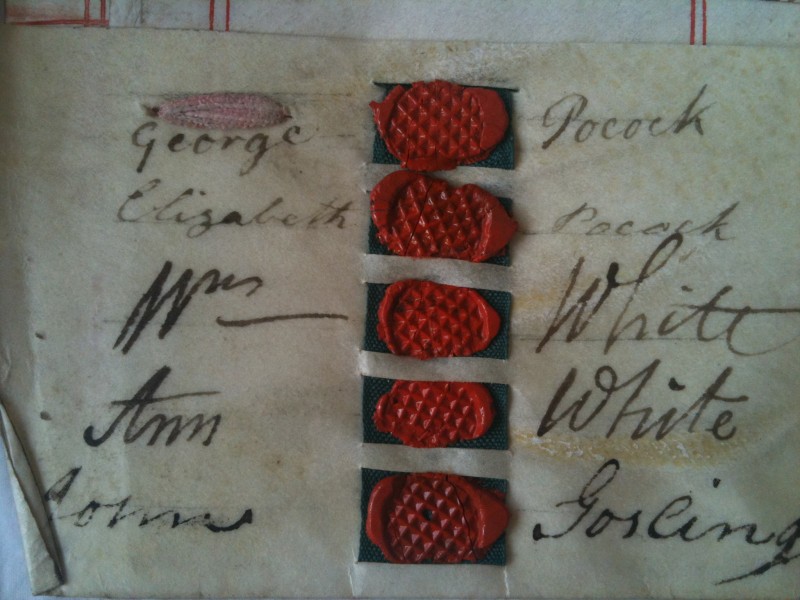 George Pocock
Elizabeth Pocock
Wm White
Ann White
John Gosling